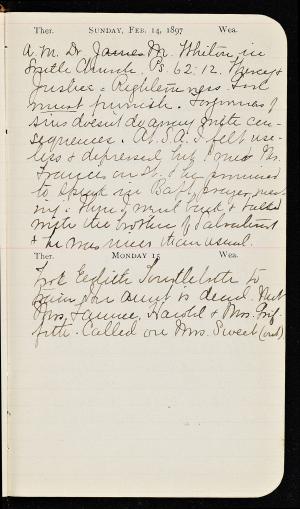 Ther. SUNDAY, FEB. 14, 1897 Wea.
A.M. Dr. James M. Whiton in
South Church. Ps. 62:12. Mercy &
Justice = Righteousness. God
must punish. Forgiveness of
sins doesn't do away with con-
sequences. At S.S. I felt use-
less & depressed, but I met Mr.
Francis on St. & he promised
to speak in Bapt. prayer meet
ing. Then I went back, & talked
with the brother
& he was nicer than usual.
Ther. MONDAY 15 Wea.
Took Edith to
train, for aunt is dead. Met
Mrs. Harold & Mrs. Grif-
fith. Called on Mrs. Sweet (out).